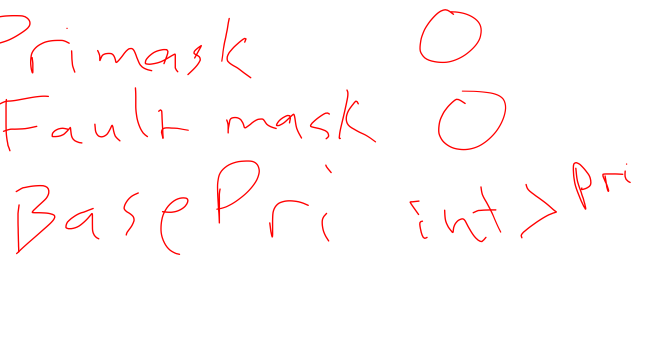 Primask 0
Fault mask 0
BasePri int > pri